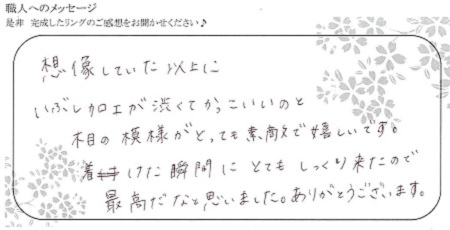 職人へのメッセージ
是非 完成したリングのご感想をお聞かせください♪
想像していた以上に
いぶし加工が渋くてかっこいいのと
木目の模様がとっても素敵で嬉しいです。
着けた瞬間にとてもしっくり来たので
最高だなと思いました。ありがとうございます。